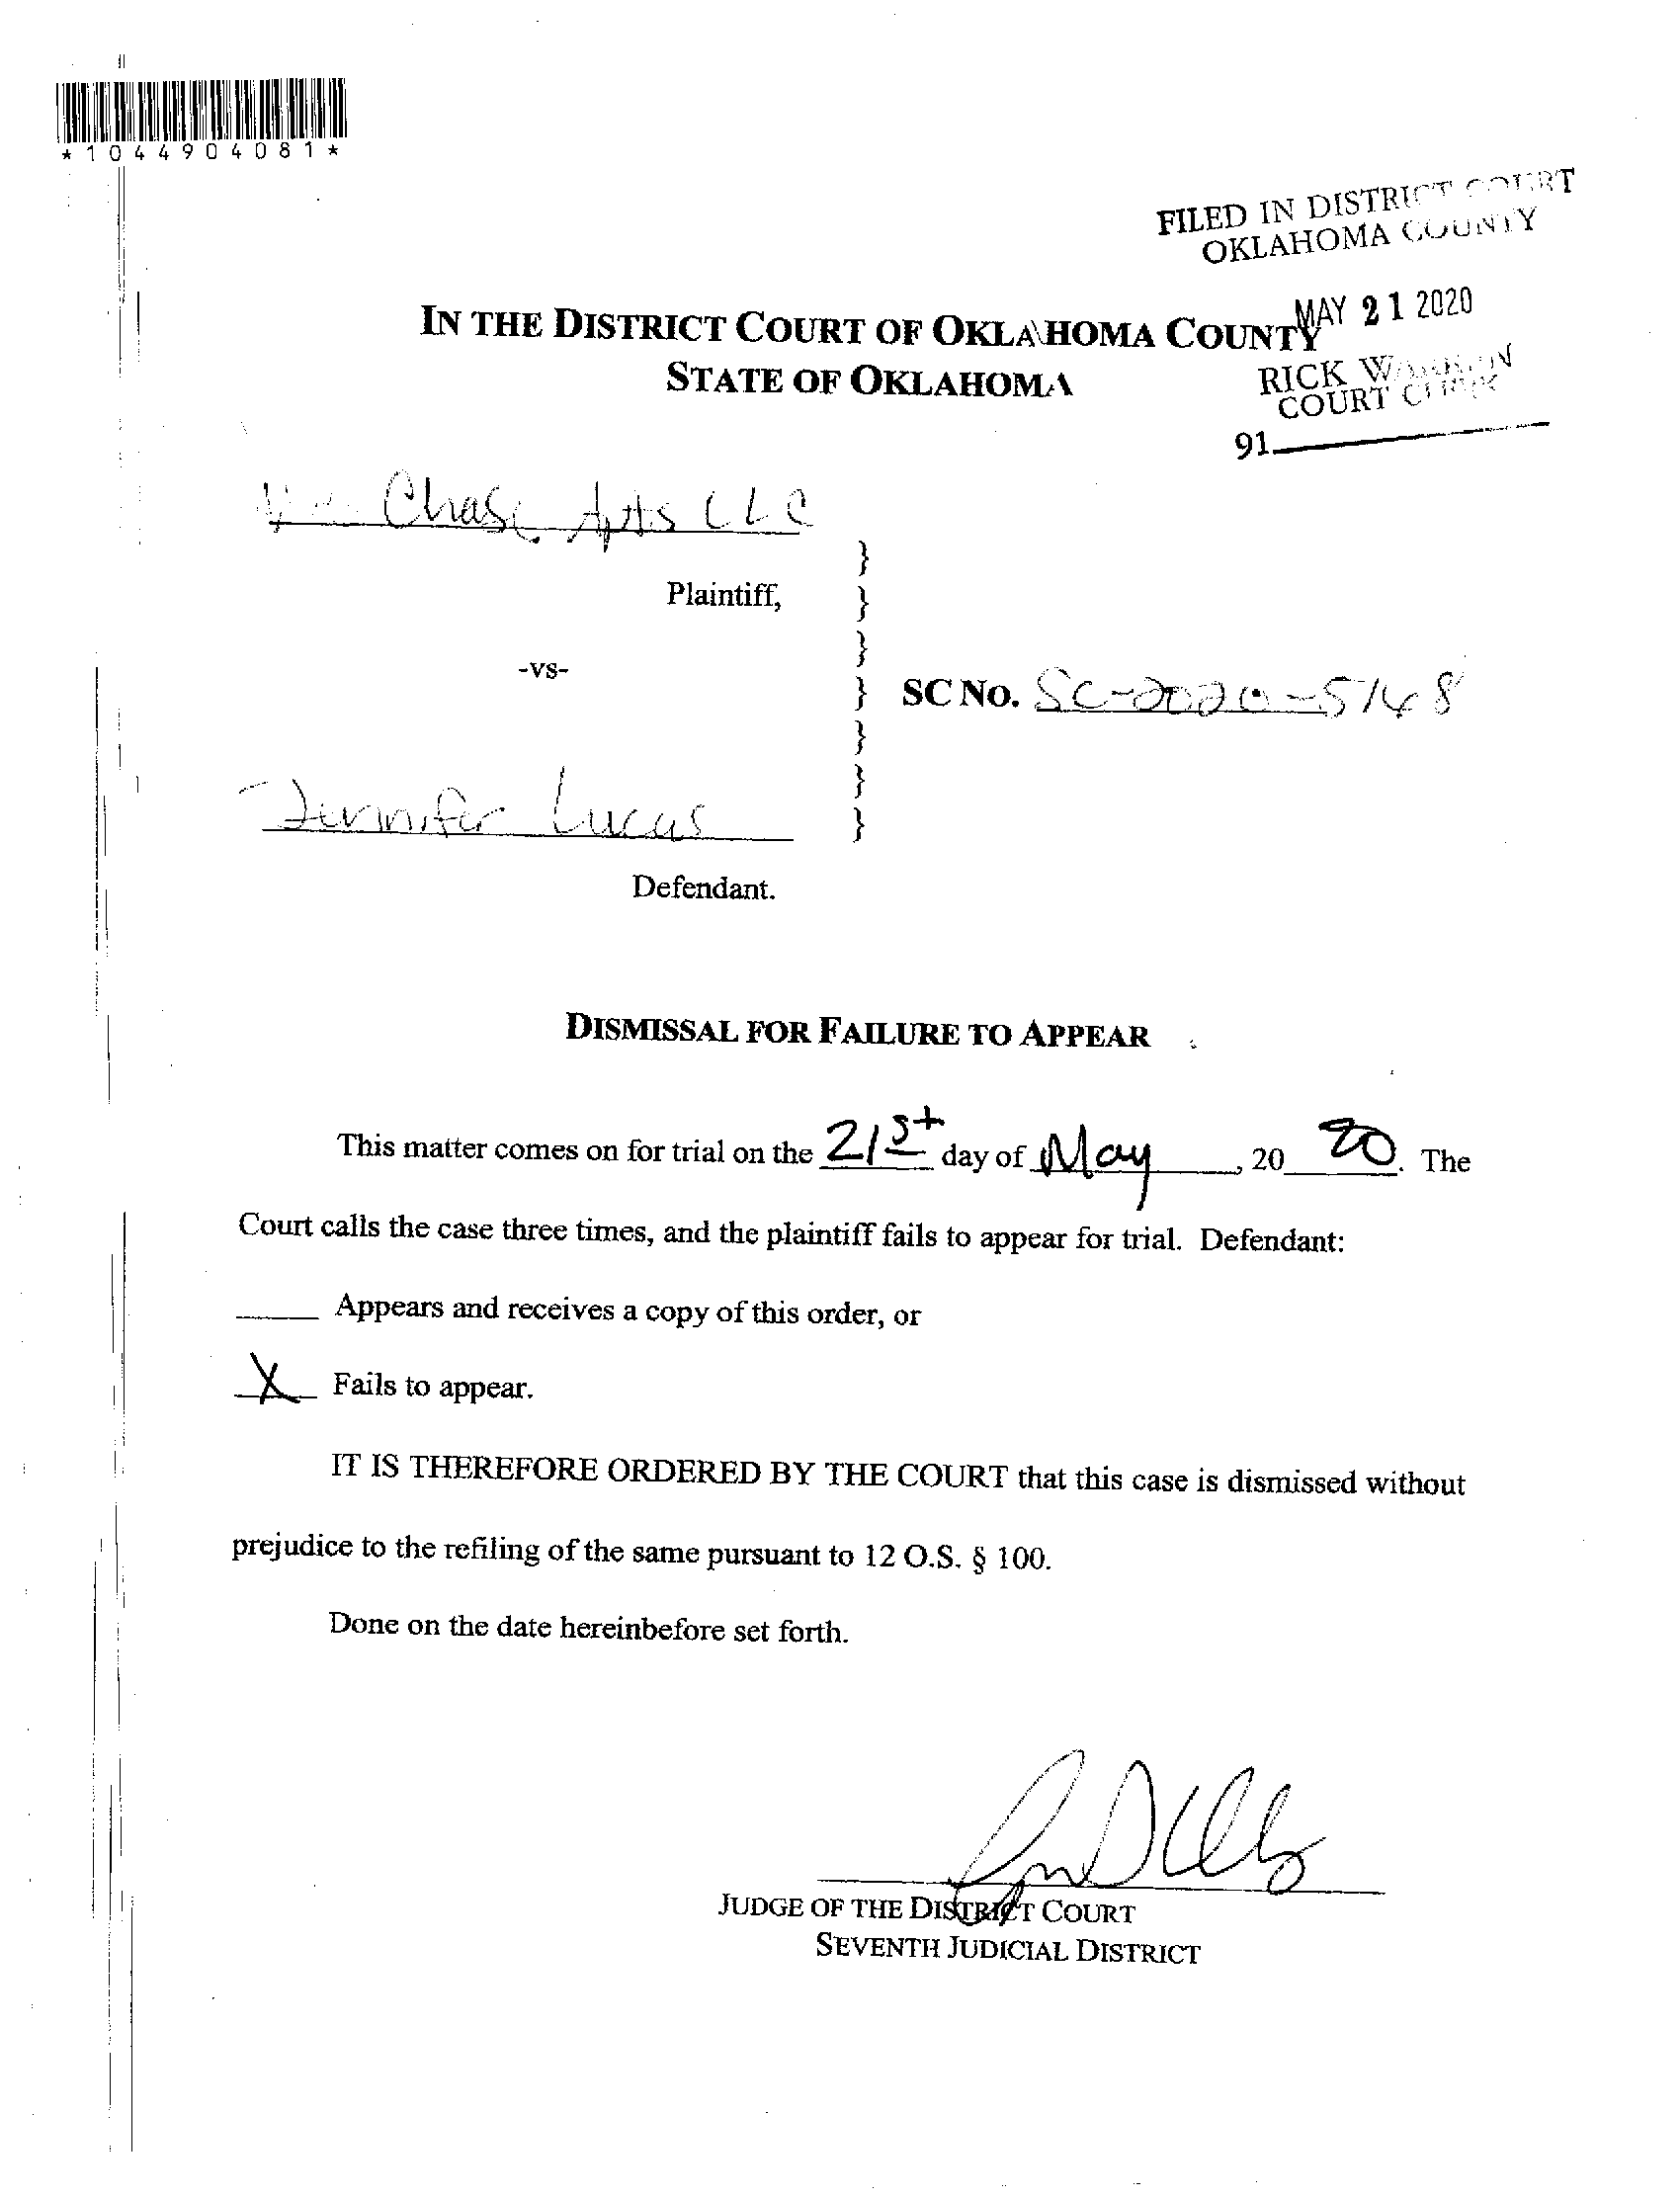 *1044904081*
FILED IN DISTRICT COURT
OKLAHOMA COUNTY
MAY 21 2020
IN THE DISTRICT COURT OF OKLAHOMA COUNTY
STATE OF OKLAHOMA
RICK WARREN
COURT CLERK
91
Chase Apts LLC
Plaintiff,
-vs-
SC NO. SC-2020-5148
Jennifer Lucas
Defendant.
DISMISSAL FOR FAILURE TO APPEAR
This matter comes on for trial on the 21st day of May, 20 20. The
Court calls the case three times, and the plaintiff fails to appear for trial. Defendant:
Appears and receives a copy of this order, or
X Fails to appear.
IT IS THEREFORE ORDERED BY THE COURT that this case is dismissed without
prejudice to the refiling of the same pursuant to 12 O.S. § 100.
Done on the date hereinbefore set forth.
JUDGE OF THE DISTRICT COURT
SEVENTH JUDICIAL DISTRICT